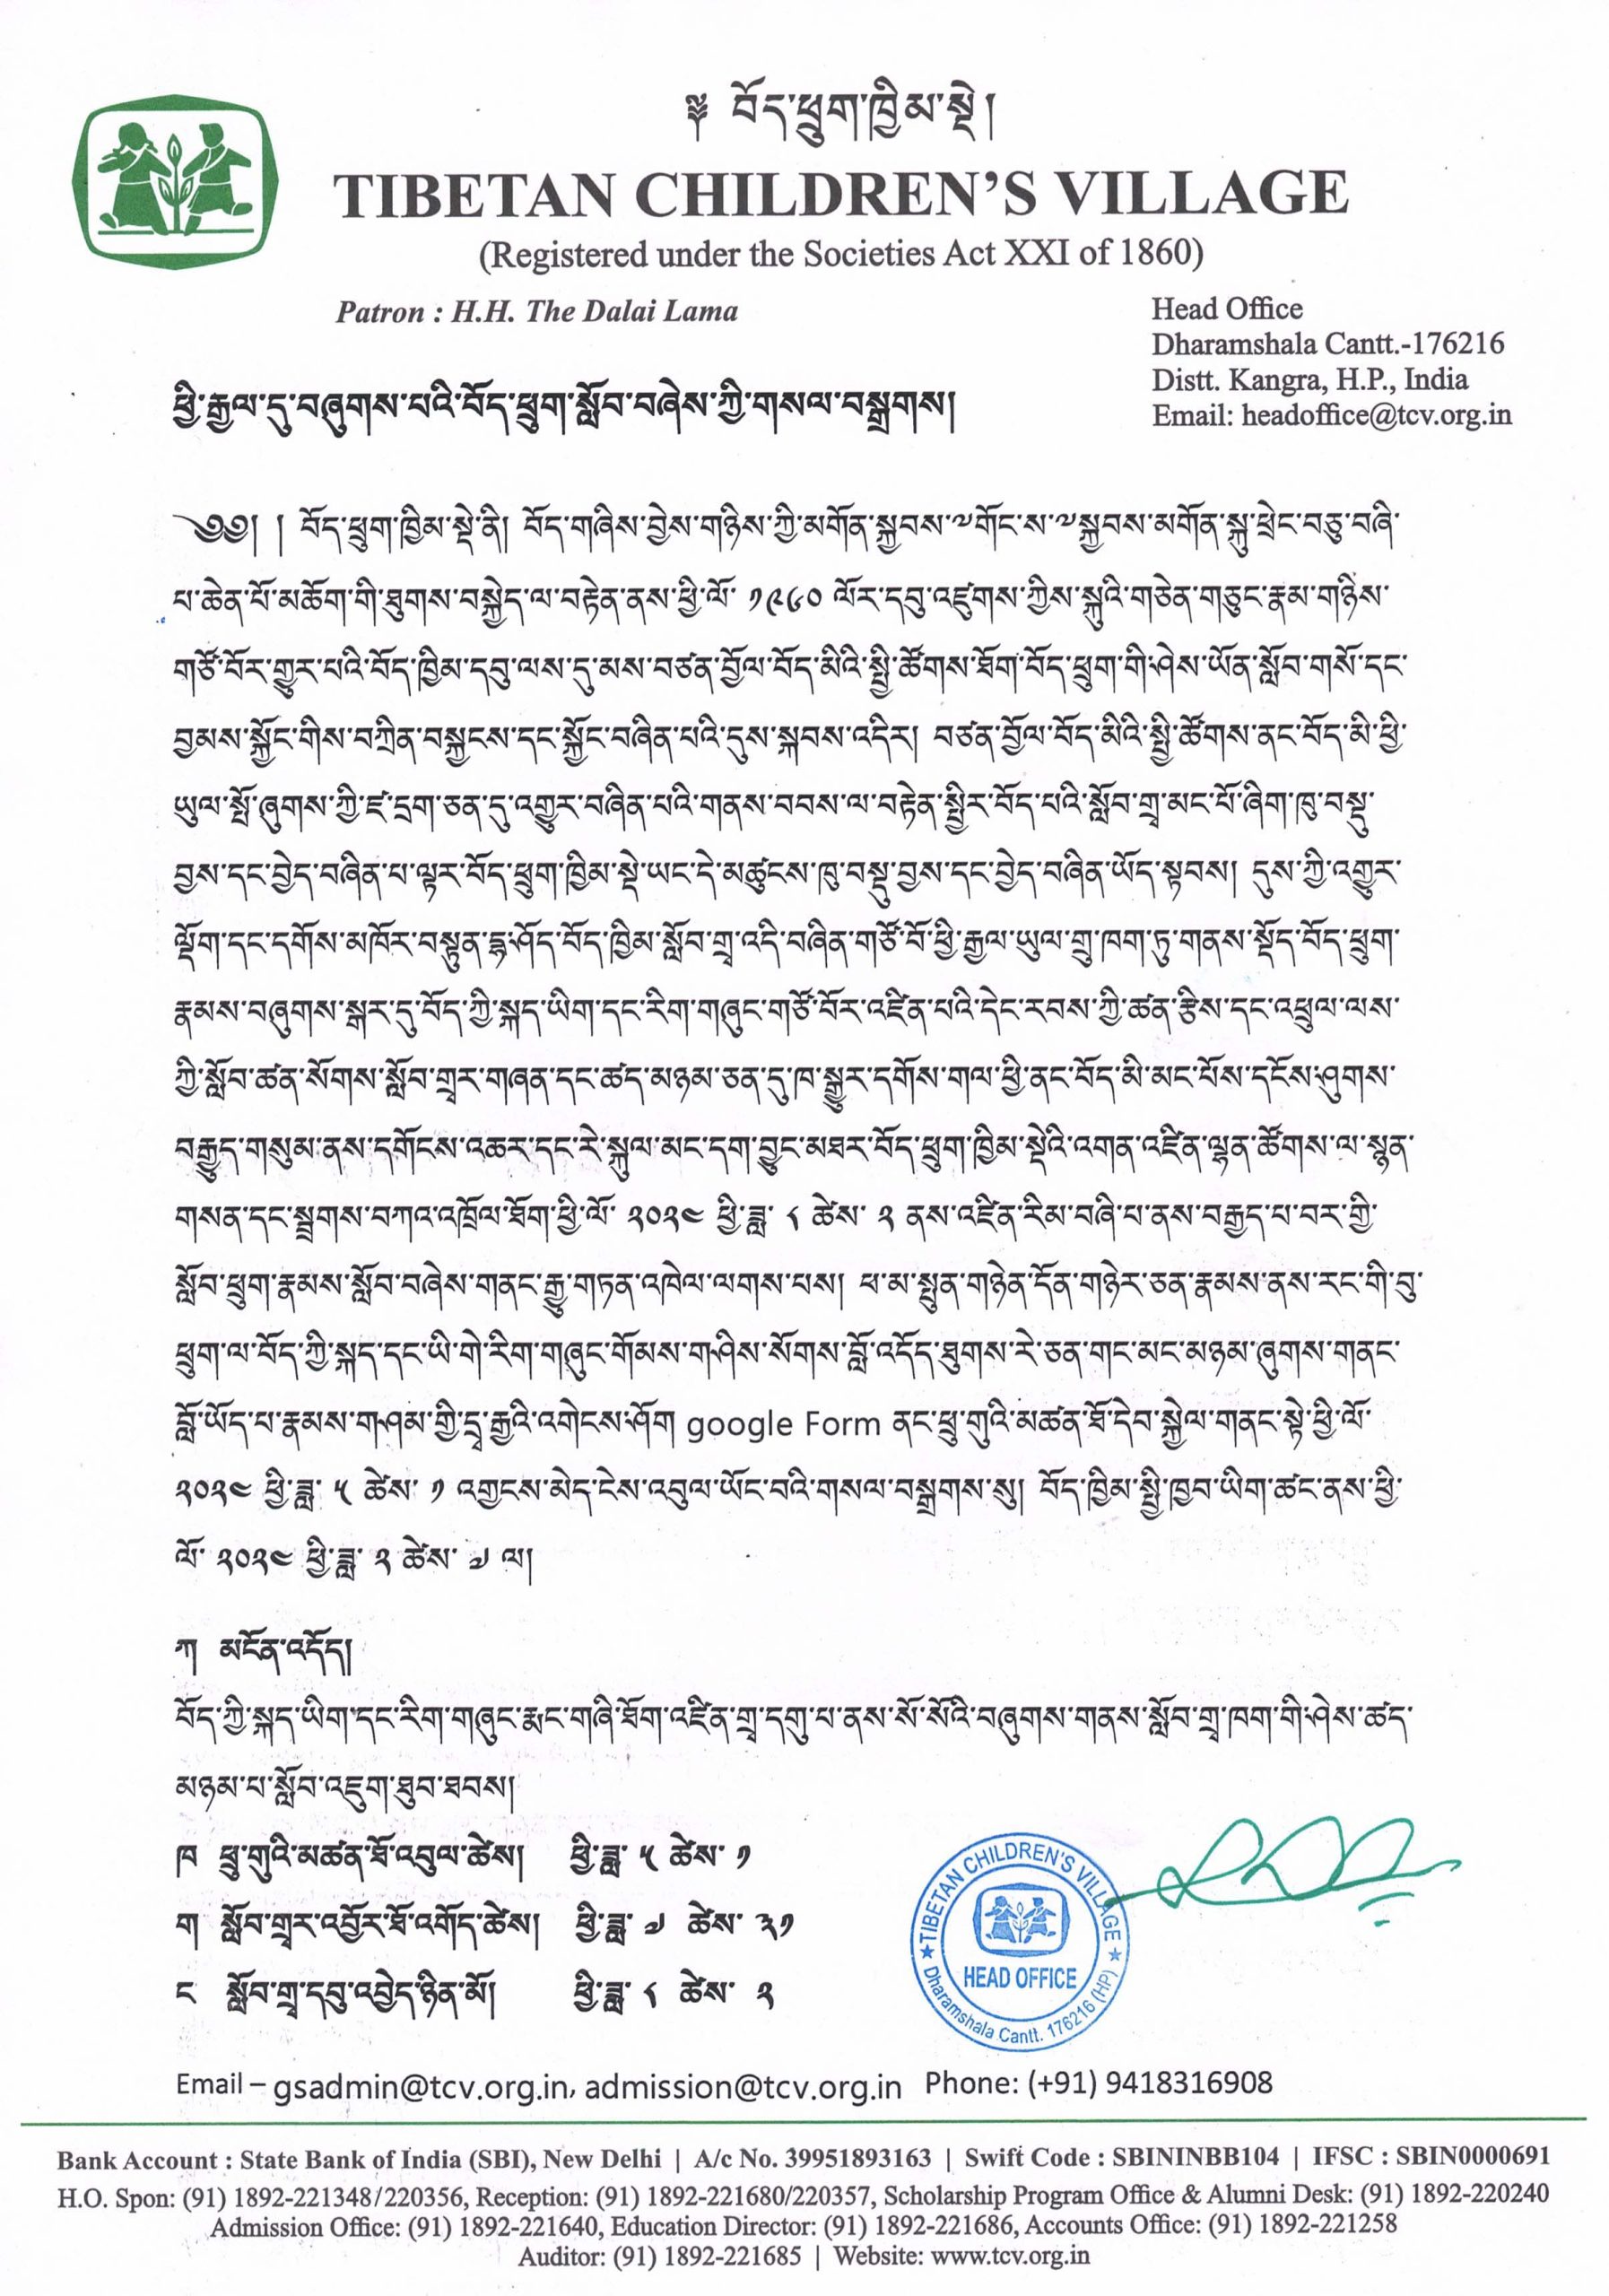 ༈ བོད་ཕྲུག་ཁྱིམ་སྡེ།
TIBETAN CHILDREN’S VILLAGE
(Registered under the Societies Act XXI of 1860)
Patron : H.H. The Dalai Lama
Head Office
Dharamshala Cantt.-176216
Distt. Kangra, H.P., India
Email: headoffice@tcv.org.in
ཕྱི་རྒྱལ་དུ་བཞུགས་པའི་བོད་ཕྲུག་སློབ་བཞེས་ཀྱི་གསལ་བསྒྲགས།
༄༅། ། བོད་ཕྲུག་ཁྱིམ་སྡེ་ནི། བོད་གཞིས་བྱེས་གཉིས་ཀྱི་མགོན་སྐྱབས་༧གོང་ས་༧སྐྱབས་མགོན་སྐུ་ཕྲེང་བཅུ་བཞི་
པ་ཆེན་པོ་མཆོག་གི་ཐུགས་བསྐྱེད་ལ་བརྟེན་ནས་ཕྱི་ལོ་ ༡༩༦༠ ལོར་དབུ་འཛུགས་ཀྱིས་སྐུའི་གཅེན་གཅུང་རྣམ་གཉིས་
གཙོ་བོར་གྱུར་པའི་བོད་ཁྱིམ་དབུ་ལས་དུ་མས་བཙན་བྱོལ་བོད་མིའི་སྤྱི་ཚོགས་ཐོག་བོད་ཕྲུག་གི་ཤེས་ཡོན་སློབ་གསོ་དང་
བྱམས་སྐྱོང་གིས་བཀྲིན་བསྐྱངས་དང་སྐྱོང་བཞིན་པའི་དུས་སྐབས་འདིར། བཙན་བྱོལ་བོད་མིའི་སྤྱི་ཚོགས་ནང་བོད་མི་ཕྱི་
ཡུལ་སྤོ་ཞུགས་ཀྱི་ཇ་དྲག་ཅན་དུ་འགྱུར་བཞིན་པའི་གནས་བབས་ལ་བརྟེན་སྤྱིར་བོད་པའི་སློབ་གྲྭ་མང་པོ་ཞིག་ཁུ་བསྡུ་
བྱས་དང་བྱེད་བཞིན་པ་ལྟར་བོད་ཕྲུག་ཁྱིམ་སྡེ་ཡང་དེ་མཚུངས་ཁུ་བསྡུ་བྱས་དང་བྱེད་བཞིན་ཡོད་སྟབས། དུས་ཀྱི་འགྱུར་
ལྡོག་དང་དགོས་མཁོར་བསྟུན་རྡ་ཤོད་བོད་ཁྱིམ་སློབ་གྲྭ་འདི་བཞིན་གཙོ་བོ་ཕྱི་རྒྱལ་ཡུལ་གྲུ་ཁག་ཏུ་གནས་སྡོད་བོད་ཕྲུག་
རྣམས་བཞུགས་སྒར་དུ་བོད་ཀྱི་སྐད་ཡིག་དང་རིག་གཞུང་གཙོ་བོར་འཛིན་པའི་དེང་རབས་ཀྱི་ཚན་རྩིས་དང་འཕྲུལ་ལས་
ཀྱི་སློབ་ཚན་སོགས་སློབ་གྲྭར་གཞན་དང་ཚད་མཉམ་ཅན་དུ་ཁ་སྒྱུར་དགོས་གལ་ཕྱི་ནང་བོད་མི་མང་པོས་དངོས་ཤུགས་
བརྒྱུད་གསུམ་ནས་དགོངས་འཆར་དང་རེ་སྐུལ་མང་དག་བྱུང་མཐར་བོད་ཕྲུག་ཁྱིམ་སྡེའི་འགན་འཛིན་ལྷན་ཚོགས་ལ་སྙན་
གསན་དང་སྦྲགས་བཀའ་འཁྲོལ་ཐོག་ཕྱི་ལོ་ ༢༠༢༤ ཕྱི་ཟླ་ ༨ ཚེས་ ༢ ནས་འཛིན་རིམ་བཞི་པ་ནས་བརྒྱད་པ་བར་གྱི་
སློབ་ཕྲུག་རྣམས་སློབ་བཞེས་གནང་རྒྱུ་གཏན་འཁེལ་ལགས་པས། ཕ་མ་སྤུན་གཉེན་དོན་གཉེར་ཅན་རྣམས་ནས་རང་གི་བུ་
ཕྲུག་ལ་བོད་ཀྱི་སྐད་དང་ཡི་གེ་རིག་གཞུང་གོམས་གཤིས་སོགས་བློ་འདོད་ཐུགས་རེ་ཅན་གང་མང་མཉམ་ཞུགས་གནང་
བློ་ཡོད་པ་རྣམས་གཤམ་གྱི་དྲྭ་རྒྱའི་འགེངས་ཤོག google Form ནང་ཕྲུ་གུའི་མཚན་ཐོ་དེབ་སྐྱེལ་གནང་སྟེ་ཕྱི་ལོ་
༢༠༢༤ ཕྱི་ཟླ་ ༥ ཚེས་ ༡ འགྱངས་མེད་ངེས་འབུལ་ཡོང་བའི་གསལ་བསྒྲགས་སུ། བོད་ཁྱིམ་སྤྱི་ཁྱབ་ཡིག་ཚང་ནས་ཕྱི་
ལོ་ ༢༠༢༤ ཕྱི་ཟླ་ ༢ ཚེས་ ༧ ལ།
ཀ། མངོན་འདོད།
བོད་ཀྱི་སྐད་ཡིག་དང་རིག་གཞུང་རྨང་གཞི་ཐོག་འཛིན་གྲྭ་དགུ་པ་ནས་སོ་སོའི་བཞུགས་གནས་སློབ་གྲྭ་ཁག་གི་ཤེས་ཚད་
མཉམ་པ་སློབ་འཇུག་ཐུབ་ཐབས།
ཁ ཕྲུ་གུའི་མཚན་ཐོ་འབུལ་ཚེས། ཕྱི་ཟླ་ ༥ ཚེས་ ༡
ག སློབ་གྲྭར་འབྱོར་ཐོ་འགོད་ཚེས། ཕྱི་ཟླ་ ༧ ཚེས་ ༣༡
ང སློབ་གྲྭ་དབུ་འབྱེད་ཉིན་མོ། ཕྱི་ཟླ་ ༨ ཚེས་ ༢
TIBETAN CHILDREN'S VILLAGE
HEAD OFFICE
Dharamshala Cantt. 176216 (HP)
Email – gsadmin@tcv.org.in, admission@tcv.org.in Phone: (+91) 9418316908
Bank Account : State Bank of India (SBI), New Delhi | A/c No. 39951893163 | Swift Code : SBININBB104 | IFSC : SBIN0000691
H.O. Spon: (91) 1892-221348/220356, Reception: (91) 1892-221680/220357, Scholarship Program Office & Alumni Desk: (91) 1892-220240
Admission Office: (91) 1892-221640, Education Director: (91) 1892-221686, Accounts Office: (91) 1892-221258
Auditor: (91) 1892-221685 | Website: www.tcv.org.in